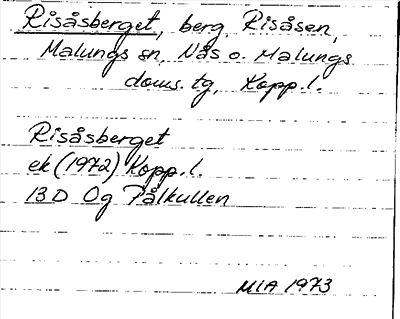 Risåsberget, berg, Risåsen,
Malungs sn, Nås o. Malungs
doms. tg, Kopp. l.
Risåsberget
ek (1972) Kopp. l.
13 D 0g Pålkullen
MIA 1973